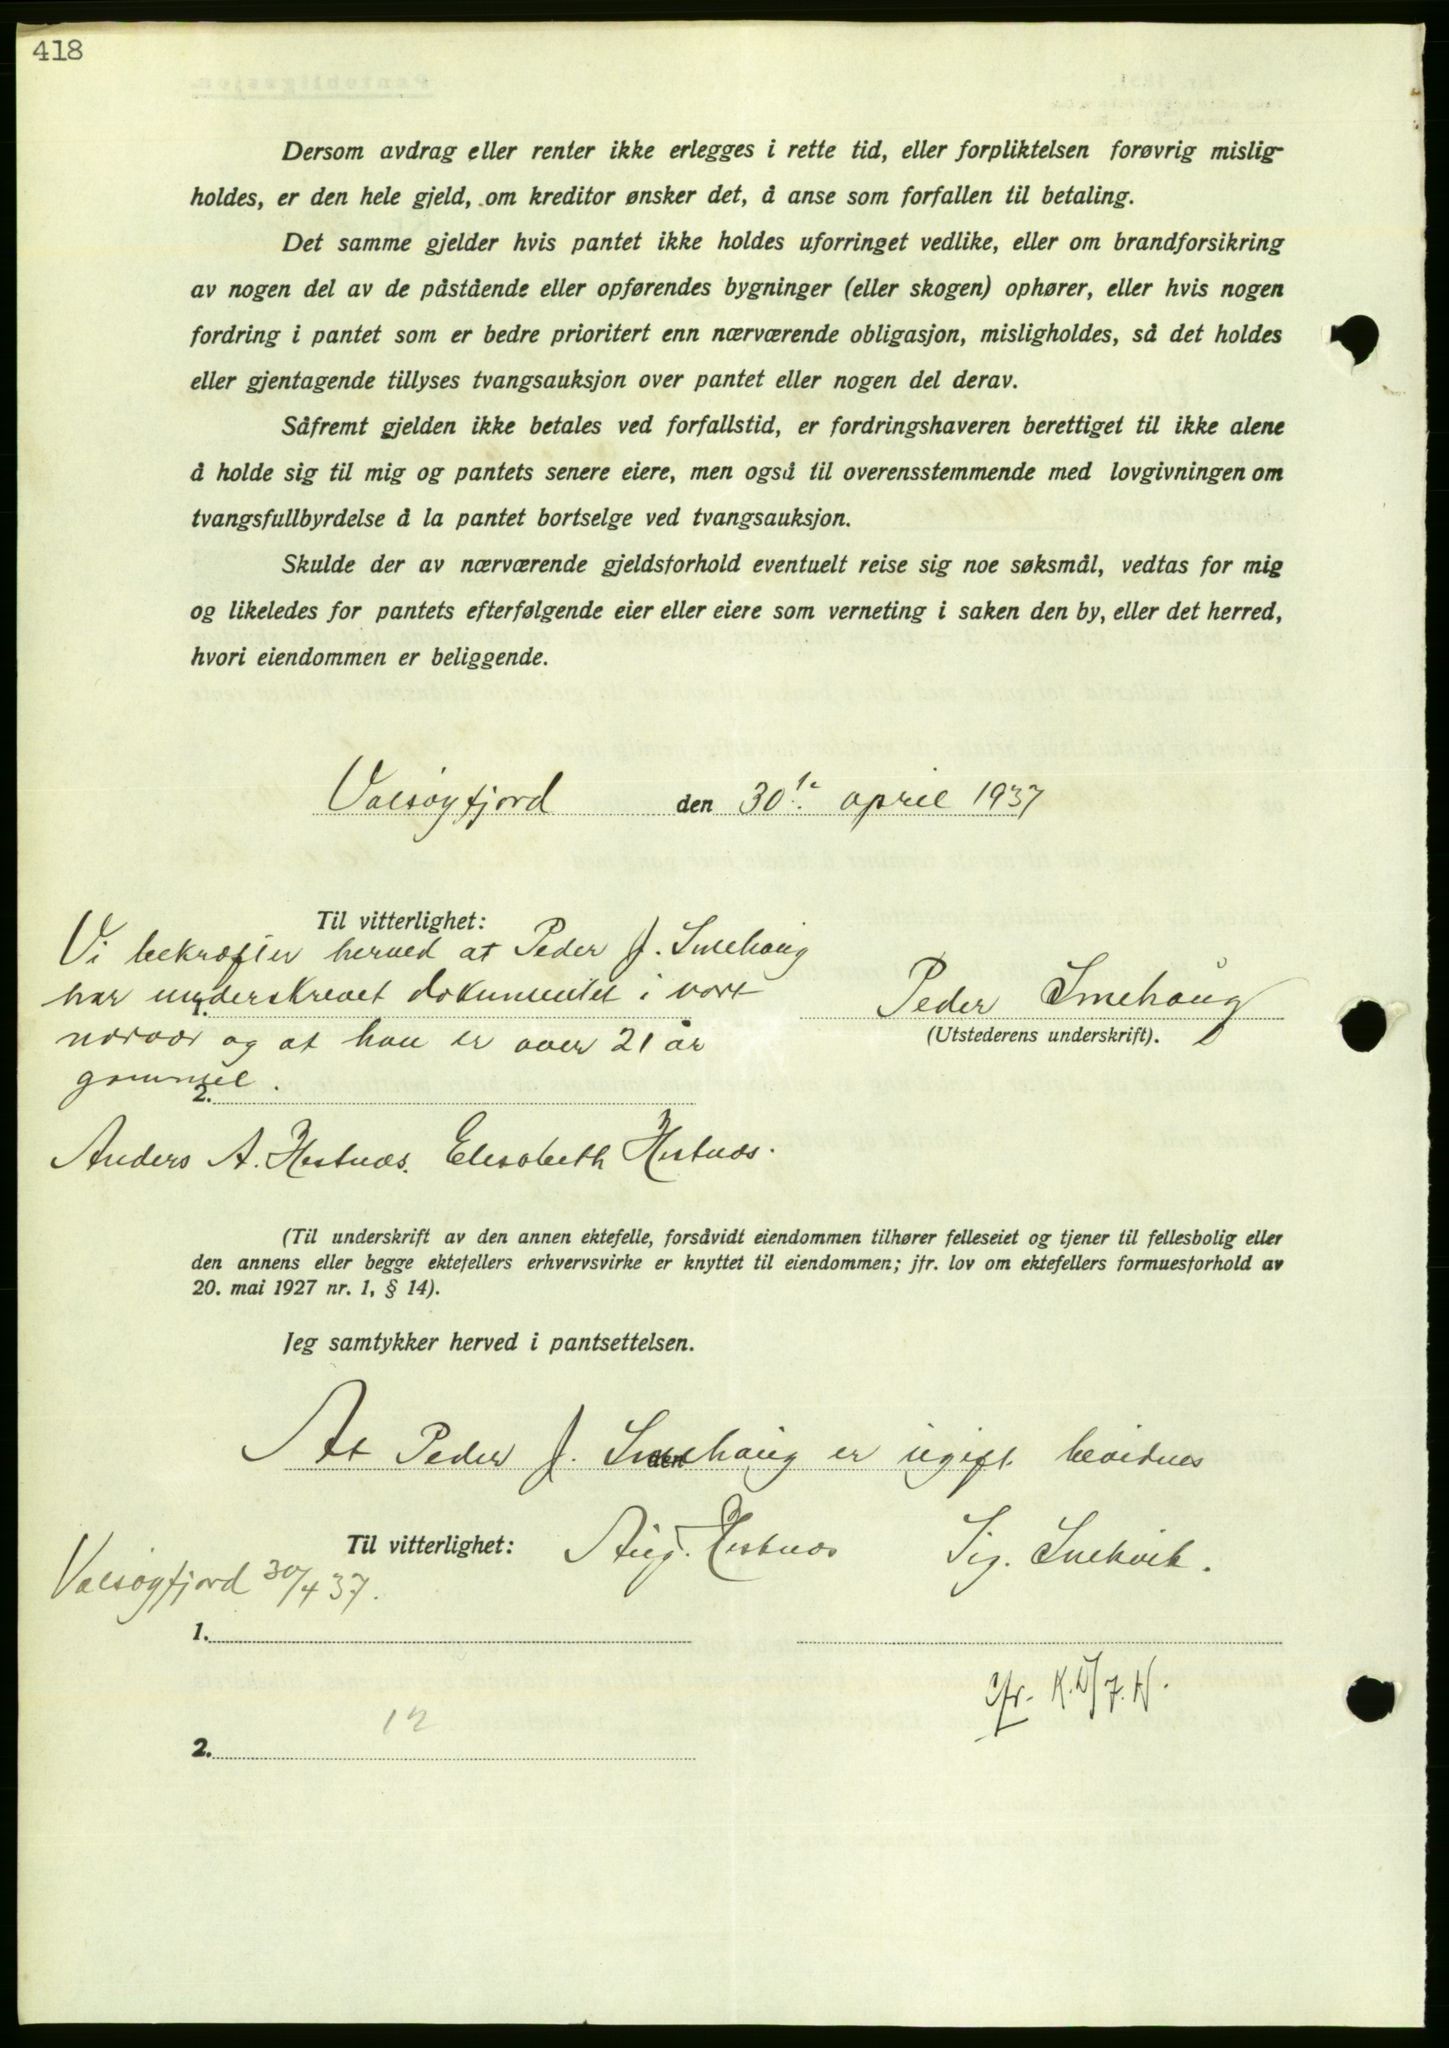 418
Dersom avdrag eller renter ikke erlegges i rette tid, eller forpliktelsen forøvrig mislig-
holdes, er den hele gjeld, om kreditor ønsker det, å anse som forfallen til betaling.
Det samme gjelder hvis pantet ikke holdes uforringet vedlike, eller om brandforsikring
av nogen del av de påstående eller opførendes bygninger (eller skogen) ophører, eller hvis nogen
fordring i pantet som er bedre prioritert enn nærværende obligasjon, misligholdes, så det holdes
eller gjentagende tillyses tvangsauksjon over pantet eller nogen del derav.
Såfremt gjelden ikke betales ved forfallstid, er fordringshaveren berettiget til ikke alene
å holde sig til mig og pantets senere eiere, men også til overensstemmende med lovgivningen om
tvangsfullbyrdelse å la pantet bortselge ved tvangsauksjon.
Skulde der av nærværende gjeldsforhold eventuelt reise sig noe søksmål, vedtas for mig
og likeledes for pantets efterfølgende eier eller eiere som verneting i saken den by, eller det herred,
hvori eiendommen er beliggende.
Valsøyfjord den 30te april 1937
Til vitterlighet:
Vi bekræfter herved at Peder J. Smehaug
har underskrevet dokumentet i vort
1.
Peder Smehaug
nærvær og at han er over 21 år
(Utstederens underskrift).
gammel.
2.
Anders A. Hestnæs. Elisabeth Hestnæs.
(Til underskrift av den annen ektefelle, forsåvidt eiendommen tilhører felleseiet og tjener til fellesbolig eller
den annens eller begge ektefellers erhvervsvirke er knyttet til eiendommen; jfr. lov om ektefellers formuesforhold av
20. mai 1927 nr. 1, § 14).
Jeg samtykker herved i pantsettelsen.
At Peder J. Smehaug er ugift bevidnes
den
Til vitterlighet: Aug. Hestnæs Sig. Snekvik.
Valsøyfjord 30/4 37.
1.
cfr.
12
2.